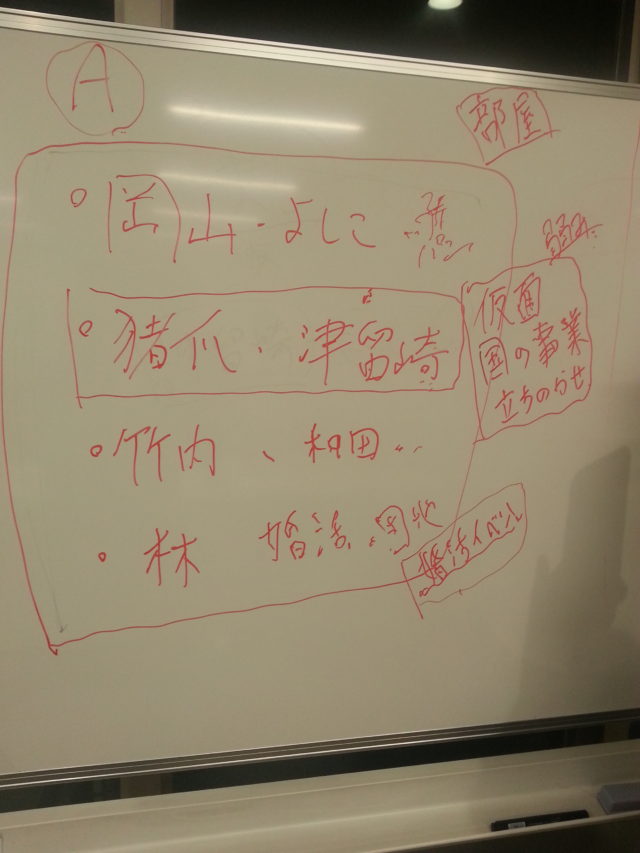 A
部屋
岡山・よしこ
猪爪・津留崎
仮面
国の事業
立ちのらせ
竹内、和田
林 婚活
婚活イベント